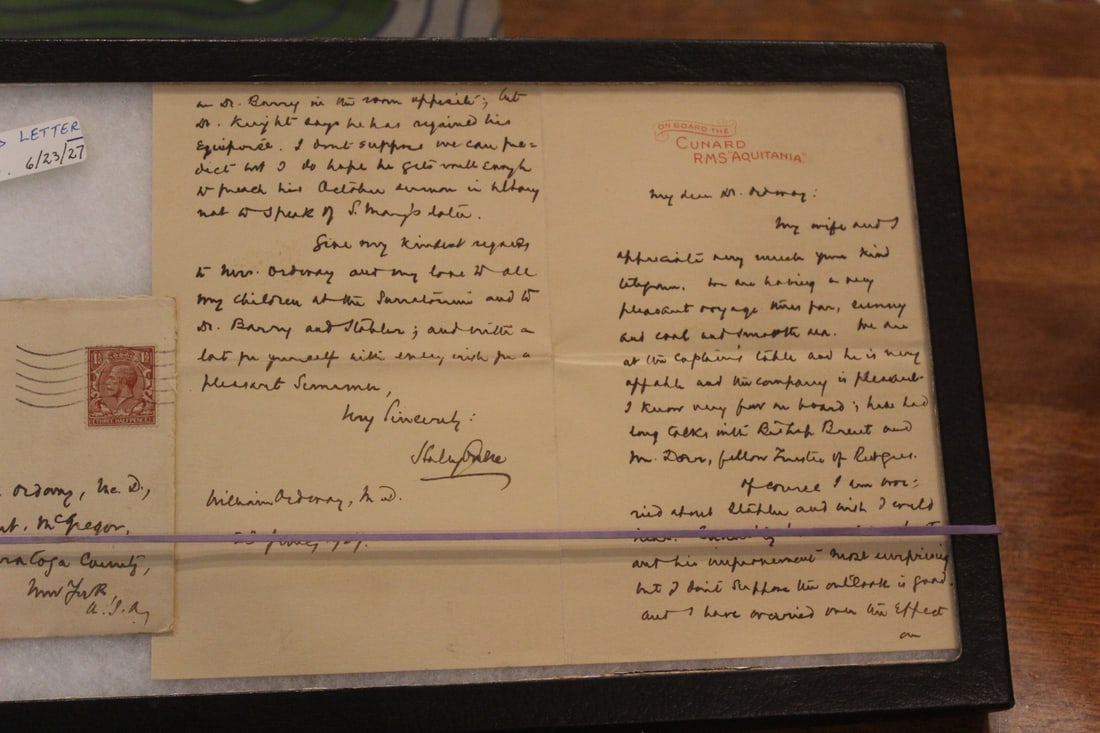 LETTER
6/23/27
THREE HALFPENCE
Ordway, M.D.,
Mt. McGregor,
Saratoga County,
New York,
U.S.A.
ON BOARD THE
CUNARD
RMS "AQUITANIA"
My dear Dr. Ordway:
My wife and I
appreciate very much your kind
telegram. We are having a very
pleasant voyage thus far, sunny
and cool and smooth sea. We are
at the Captain's table and he is very
affable and the company is pleasant.
I know very few on board; have had
long talks with Bishop Brent and
Mr. Dorr, fellow Trustee of Rutgers.
Of course I am wor-
ried about Stohler and wish I could
and his improvement most surprising
but I don't suppose the outlook is good.
and I have worried over the effect
on
on Dr. Barry in the room opposite; but
Dr. Knight says he has regained his
Equipoise. I don't suppose we can pre-
dict but I do hope he gets well enough
to preach his October sermon in Albany
not to speak of S. Mary's later.
Give my kindest regards
to Mrs. Ordway and my love to all
my children at the Sanatorium and to
Dr. Barry and Stohler; and with a
lot for yourself with every wish for a
pleasant Summer,
Very Sincerely:
William Ordway, M.D.